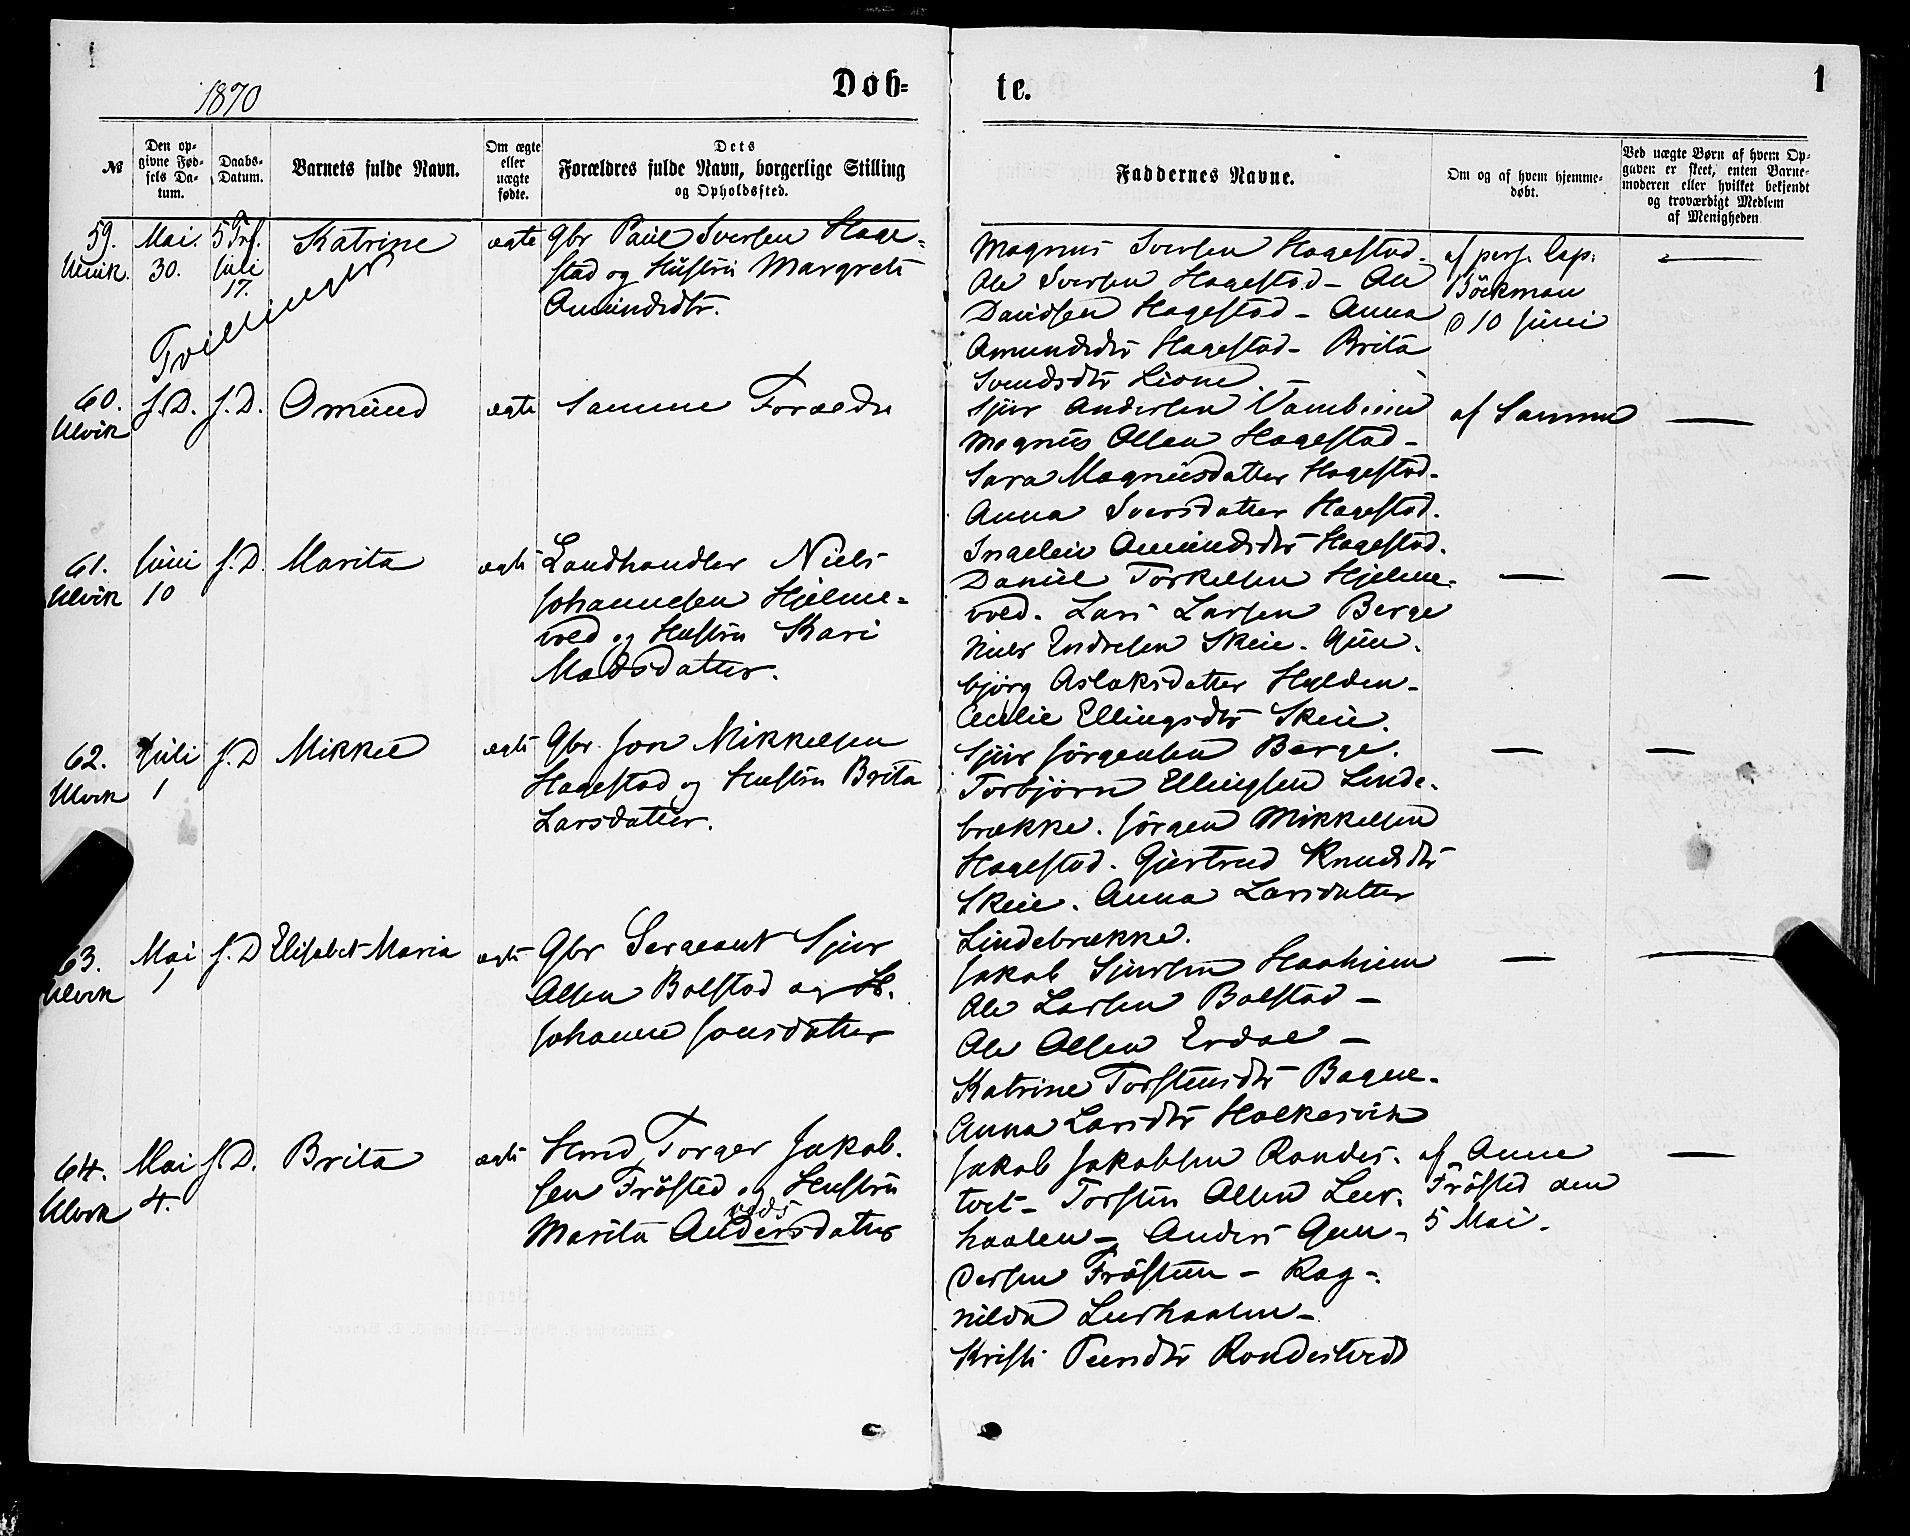 1870
Døb-
te.
1
№
Den op-
givne Fød-
sels Da-
tum.
Daabs-
Datum.
Barnets fulde Navn.
Om ægte
eller
uægte
fødte.
Dets
Forældres fulde Navn, borgerlige Stilling
og Opholdssted.
Faddernes Navne.
Om og af hvem hjemme-
døbt.
Ved uægte Børn af hvem Op-
gaven er skeet, enten Barne-
moderen eller hvilket bekjendt
og troværdigt Medlem
af Menigheden
59.
Ulvik.
Mai.
30.
5 Trf.
Juli
17.
Katrine
ægte
Gbr Paul Iversen Hage-
stad og Hustru Margrete
Amundsdtr.
Magnus Iversen Hagestad.
Ole Iversen Hagestad - Ole
Davidsen Hagestad - Anna
Amundsdtr Hagestad - Brita
Svendsdtr Lione
af pers. Cap.
Böckman
d 10 Juni
Tvillinger
60.
Ulvik
s.D.
s.D.
Omund
ægte
Samme Forældre
Sjur Andersen Vambheim
Magnus Olsen Hagestad -
Sara Magnusdatter Hagestad -
Anna Iversdatter Hagestad.
Ingeleiv Amundsdtr Hagestad.
af Samme
61.
Ulvik
Juni
10
s.D.
Marita
ægte
Landhandler Niels
Johannesen Hjelme-
vold og Hustru Kari
Madsdatter.
Daniel Torkelsen Hjelme-
vold. Lars Larsen Berge
Niels Endresen Skeie. Gun-
björg Aslaksdatter Hylden -
Cecilie Ellingsdtr Skeie.
62.
Ulvik
Juli
1
s.D
Mikkel
ægte
Gbr. Jon Mikkelsen
Hagestad og Hustru Brita
Larsdatter.
Sjur Jörgensen Berge.
Torbjörn Ellingsen Linde-
brække. Jörgen Mikkelsen
Hagestad. Gjertrud Knudsdtr
Skeie. Anna Larsdatter
Lindebrække.
63.
Ulvik
Mai
1
s.D
Elisabet Maria
ægte
Gbr Sergeant Sjur
Olsen Bolstad og H.
Johanne Jonsdatter
Jakob Sjursen Haaheim
Ole Larsen Bolstad -
Ole Olsen Erdal -
Katrine Torsteinsdtr Bagne -
Anna Larsdtr Holkesvik
64.
Ulvik
Mai
4.
s.D.
Brita
ægte
Hmd Torger Jakob-
sen Frösted og Hustru
Marita Andersdatter
Jakob Jakobsen Rondes-
tvet - Torstein Olsen Leir-
haalen - Anders Gun-
dersen Fröstein - Rag-
nilda Leirhaalen -
Kristi Peersdtr Rondestvedt
af Anne
Fröstad den
5 Mai.